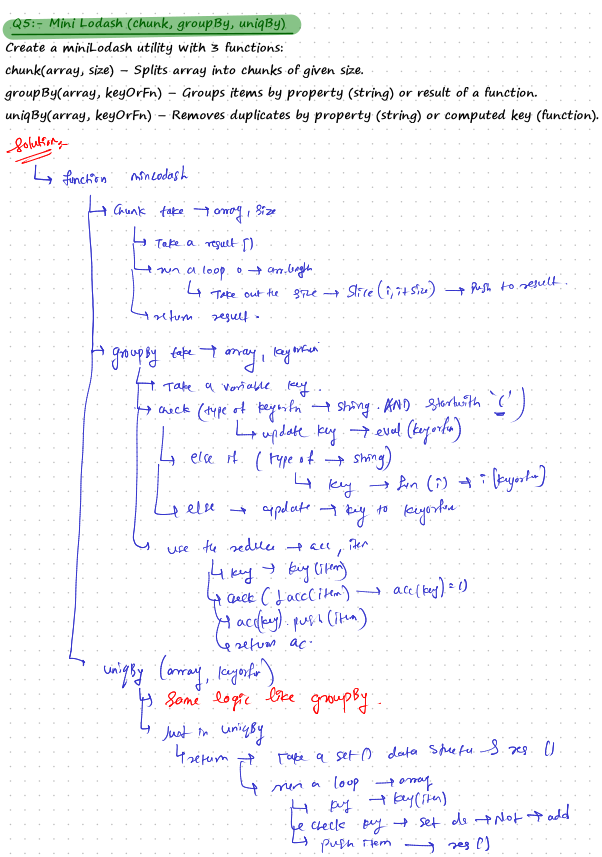 Q5:- Mini Lodash (chunk, groupBy, uniqBy)
Create a miniLodash utility with 3 functions:
chunk(array, size) – Splits array into chunks of given size.
groupBy(array, keyOrFn) – Groups items by property (string) or result of a function.
uniqBy(array, keyOrFn) – Removes duplicates by property (string) or computed key (function).
Solution:-
↳ function miniLodash
→ Chunk take → array, size
→ Take a result []
→ run a loop 0 → arr.length
↳ Take out the size → Slice (i, i+size) → Push to result.
↳ return result.
→ groupBy take → array, keyorfn
→ Take a variable key.
→ check (type of keyorfn → string. AND startwith '(')
↳ update key → eval (keyorfn)
↳ else if (type of → string)
↳ key → fun (i) → i [keyorfn]
↳ else → update → key to keyorfn
↳ use the reduce → acc, item
↳ key → key(item)
↳ check (!acc(item) → acc(key) = []
↳ acc(key).push(item)
↳ return ac.
uniqBy (array, keyorfn)
↳ Same logic like groupBy.
↳ Just in uniqBy
↳ return → Take a set() data & res []
↳ run a loop → array
↳ key → key(item)
↳ check key → set ds → Not → add
↳ push item → res []